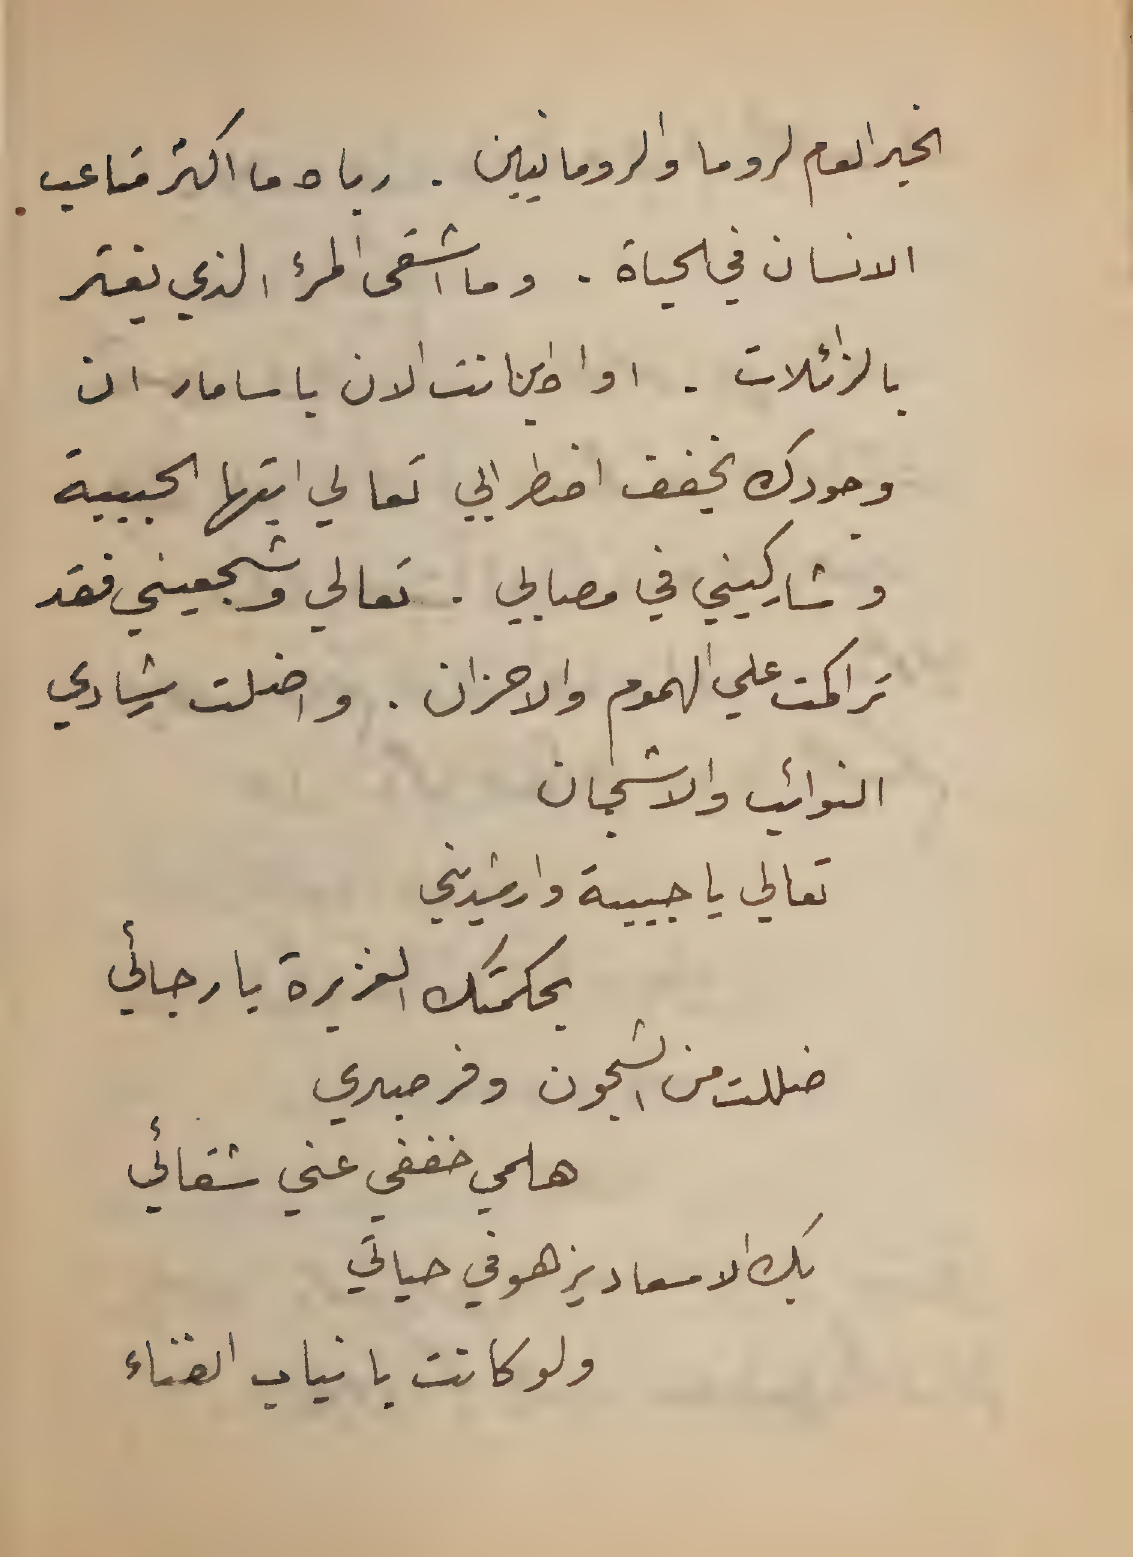 الخير العام لروما والرومانيين . رباه ما اكثر متاعب
الانسان في الحياة . وما اشقى المرء الذي يغتر
بالزائلات . اواه اين انت الان يا سامار ان
وجودك يخفف اضطرابي تعالي ايتها الحبيبة
وشاركيني في مصابي . تعالي وشجعيني فقد
تراكمت علي الهموم والاحزان . واضلت رشادي
النوائب والاشجان
تعالي يا حبيبة وارشديني
بحكمتك الغزيرة يا رجائي
ضللت من الشجون وفر صبري
هلمي خففي عني شقائي
بك الاسعاد يزهو في حياتي
ولو كانت بانياب الفناء